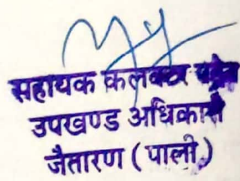 सहायक कलक्टर
उपखण्ड अधिकारी
जैतारण (पाली)